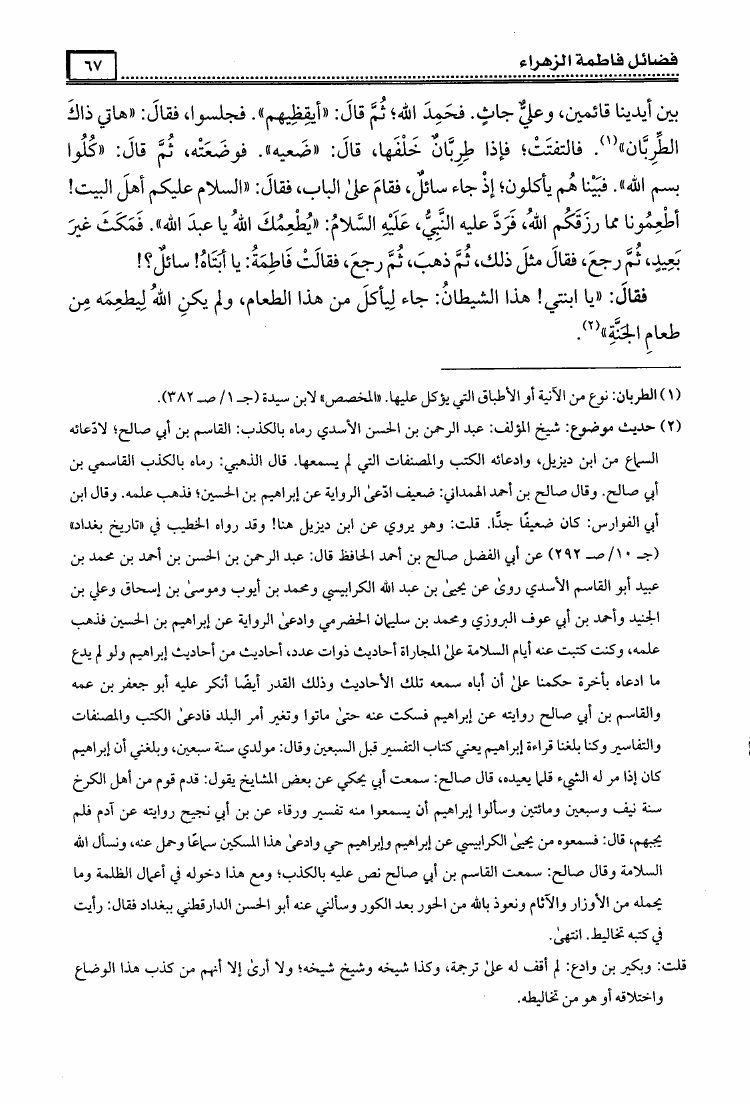 فضائل فاطمة الزهراء
٦٧
بين أيدينا قائمين، وعليٌّ جاثٍ. فحَمِدَ الله؛ ثُمَّ قالَ: «أيقِظِيهم». فجلسوا، فقالَ: «هاتي ذاكَ
الطِّرِبَّان»(١). فالتفتَتْ؛ فإذا طِرِبَّانٌ خَلْفَها، قالَ: «ضَعيه». فوضَعَتْه، ثُمَّ قالَ: «كُلُوا
بسم الله». فبَيْنا هُم يأكلون؛ إذْ جاء سائلٌ، فقامَ علىٰ الباب، فقالَ: «السلام عليكم أهلَ البيت!
أطْعِمُونا مما رزَقَكُم اللهُ، فَرَدَّ عليه النَّبِيُّ، عَلَيْهِ السَّلامُ: «يُطْعِمُكَ اللهُ يا عبدَ الله». فَمَكَثَ غيرَ
بَعِيدٍ، ثُمَّ رجعَ، فقالَ مثلَ ذلك، ثُمَّ ذهبَ، ثُمَّ رجعَ، فقالَتْ فَاطِمَةُ: يا أبَتَاهُ! سائلٌ؟!
فقالَ: «يا ابنتي! هذا الشيطانُ: جاء لِيأكلَ من هذا الطعام، ولم يكنِ اللهُ لِيطعِمَه مِن
طعامِ الجَنَّةِ»(٢).
(١) الطربان: نوع من الآنية أو الأطباق التي يؤكل عليها. «المخصص» لابن سيدة (جـ١/ صـ٣٨٢).
(٢) حديث موضوع: شيخ المؤلف: عبد الرحمن بن الحسن الأسدي رماه بالكذب: القاسم بن أبي صالح؛ لادّعائه
السماع من ابن ديزيل، وادعائه الكتب والمصنفات التي لم يسمعها. قال الذهبي: رماه بالكذب القاسمي بن
أبي صالح. وقال صالح بن أحمد الهمداني: ضعيف ادّعىٰ الرواية عن إبراهيم بن الحسين؛ فذهب علمه. وقال ابن
أبي الفوارس: كان ضعيفًا جدًّا. قلت: وهو يروي عن ابن ديزيل هنا! وقد رواه الخطيب في «تاريخ بغداد»
(جـ١٠/ صـ٢٩٢) عن أبي الفضل صالح بن أحمد الحافظ قال: عبد الرحمن بن الحسن بن أحمد بن محمد بن
عبيد أبو القاسم الأسدي روىٰ عن يحيىٰ بن عبد الله الكرابيسي ومحمد بن أيوب وموسىٰ بن إسحاق وعلي بن
الجنيد وأحمد بن أبي عوف البروزي ومحمد بن سليمان الحضرمي وادعىٰ الرواية عن إبراهيم بن الحسين فذهب
علمه، وكنت كتبت عنه أيام السلامة علىٰ المجاراة أحاديث ذوات عدد، أحاديث من أحاديث إبراهيم ولو لم يدع
ما ادعاه بأخرة حكمنا علىٰ أن أباه سمعه تلك الأحاديث وذلك القدر أيضًا أنكر عليه أبو جعفر بن عمه
والقاسم بن أبي صالح روايته عن إبراهيم فسكت عنه حتىٰ ماتوا وتغير أمر البلد فادعىٰ الكتب والمصنفات
والتفاسير وكنا بلغنا قراءة إبراهيم يعني كتاب التفسير قبل السبعين وقال: مولدي سنة سبعين، وبلغني أن إبراهيم
كان إذا مر له الشيء قلما يعيده، قال صالح: سمعت أبي يحكي عن بعض المشايخ يقول: قدم قوم من أهل الكرخ
سنة نيف وسبعين ومائتين وسألوا إبراهيم أن يسمعوا منه تفسير ورقاء عن بن أبي نجيح روايته عن آدم فلم
يجبهم، قال: فسمعوه من يحيىٰ الكرابيسي عن إبراهيم وإبراهيم حي وادعىٰ هذا المسكين سماعًا وحمل عنه، ونسأل الله
السلامة وقال صالح: سمعت القاسم بن أبي صالح نص عليه بالكذب؛ ومع هذا دخوله في أعمال الظلمة وما
يحمله من الأوزار والآثام ونعوذ بالله من الحور بعد الكور وسألني عنه أبو الحسن الدارقطني ببغداد فقال: رأيت
في كتبه تخاليط. انتهىٰ.
قلت: وبكير بن وادع: لم أقف له علىٰ ترجمة، وكذا شيخه وشيخ شيخه؛ ولا أرىٰ إلا أنهم من كذب هذا الوضاع
واختلاقه أو هو من تخاليطه.